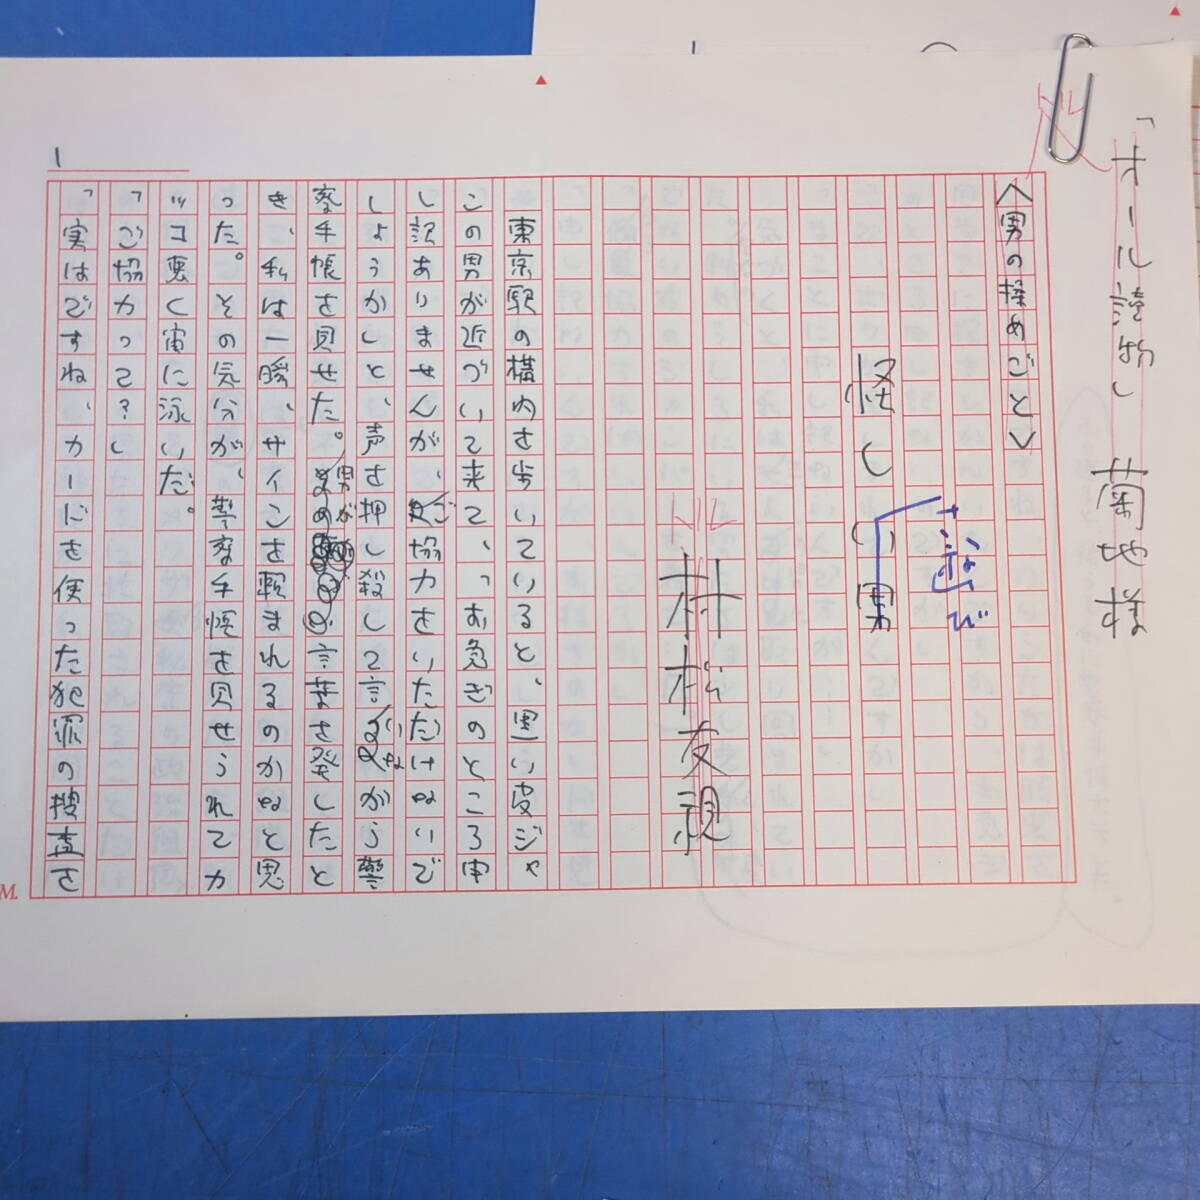 「オール讀物」 菊地様
トル
<男の揉めごと>
怪しい男
さ並び
トル
村松友視
東京駅の構内を歩いていると、黒い皮ジャ
この男が近づいて来て、「お急ぎのところ申
し訳ありませんが、ご協力をいただけないで
しょうかしと、声を押し殺して言いながら警
察手帳を見せた。男が言葉を発したと
き、私は一瞬、サインを頼まれるのかなと思
った。その気分が、警察手帳を見せられてカ
ッコ悪く宙に泳いだ。
「ご協力って?」
「実はですね、カードを使った犯罪の捜査を
1
M.